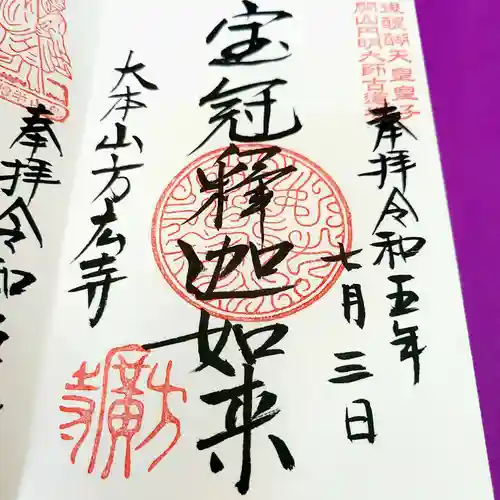 後醍醐天皇皇子
開山円明大師古道場
奉拝令和五年
七月三日
宝冠釋迦如来
大本山方広寺
方廣寺
奉拝令和五